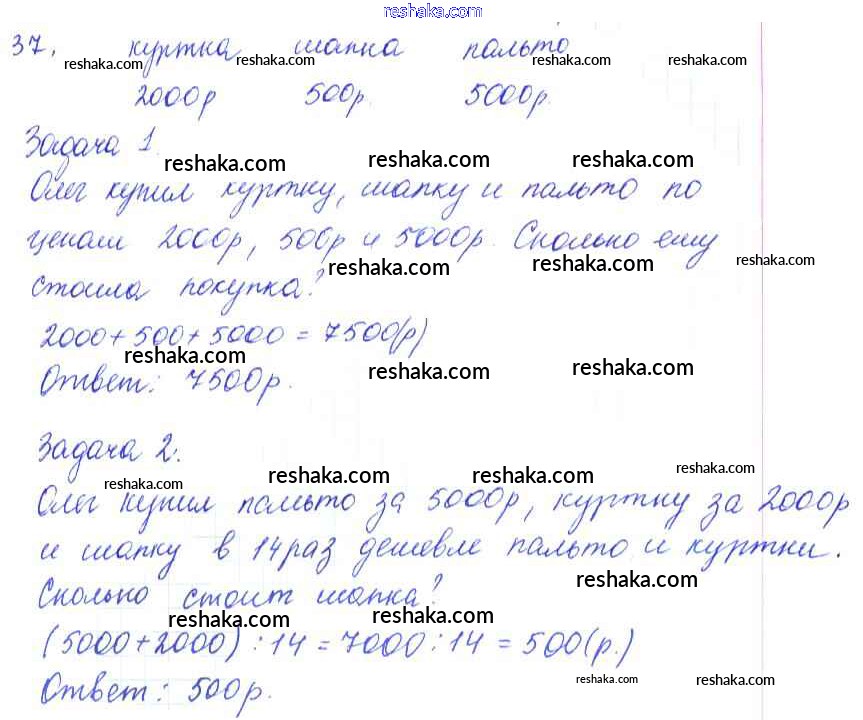 reshaka.com
37. куртка шапка пальто
reshaka.com reshaka.com reshaka.com reshaka.com
2000р 500р. 5000р.
Задача 1.
reshaka.com reshaka.com reshaka.com
Олег купил куртку, шапку и пальто по
ценам 2000р, 500р и 5000р. Сколько ему
reshaka.com reshaka.com reshaka.com
стоила покупка?
2000+500+5000=7500(р)
reshaka.com reshaka.com reshaka.com
Ответ: 7500р.
Задача 2.
reshaka.com reshaka.com reshaka.com reshaka.com
Олег купил пальто за 5000р, куртку за 2000р
и шапку в 14 раз дешевле пальто и куртки.
reshaka.com
Сколько стоит шапка?
reshaka.com reshaka.com
(5000+2000):14=7000:14=500(р.)
Ответ: 500р.
reshaka.com reshaka.com